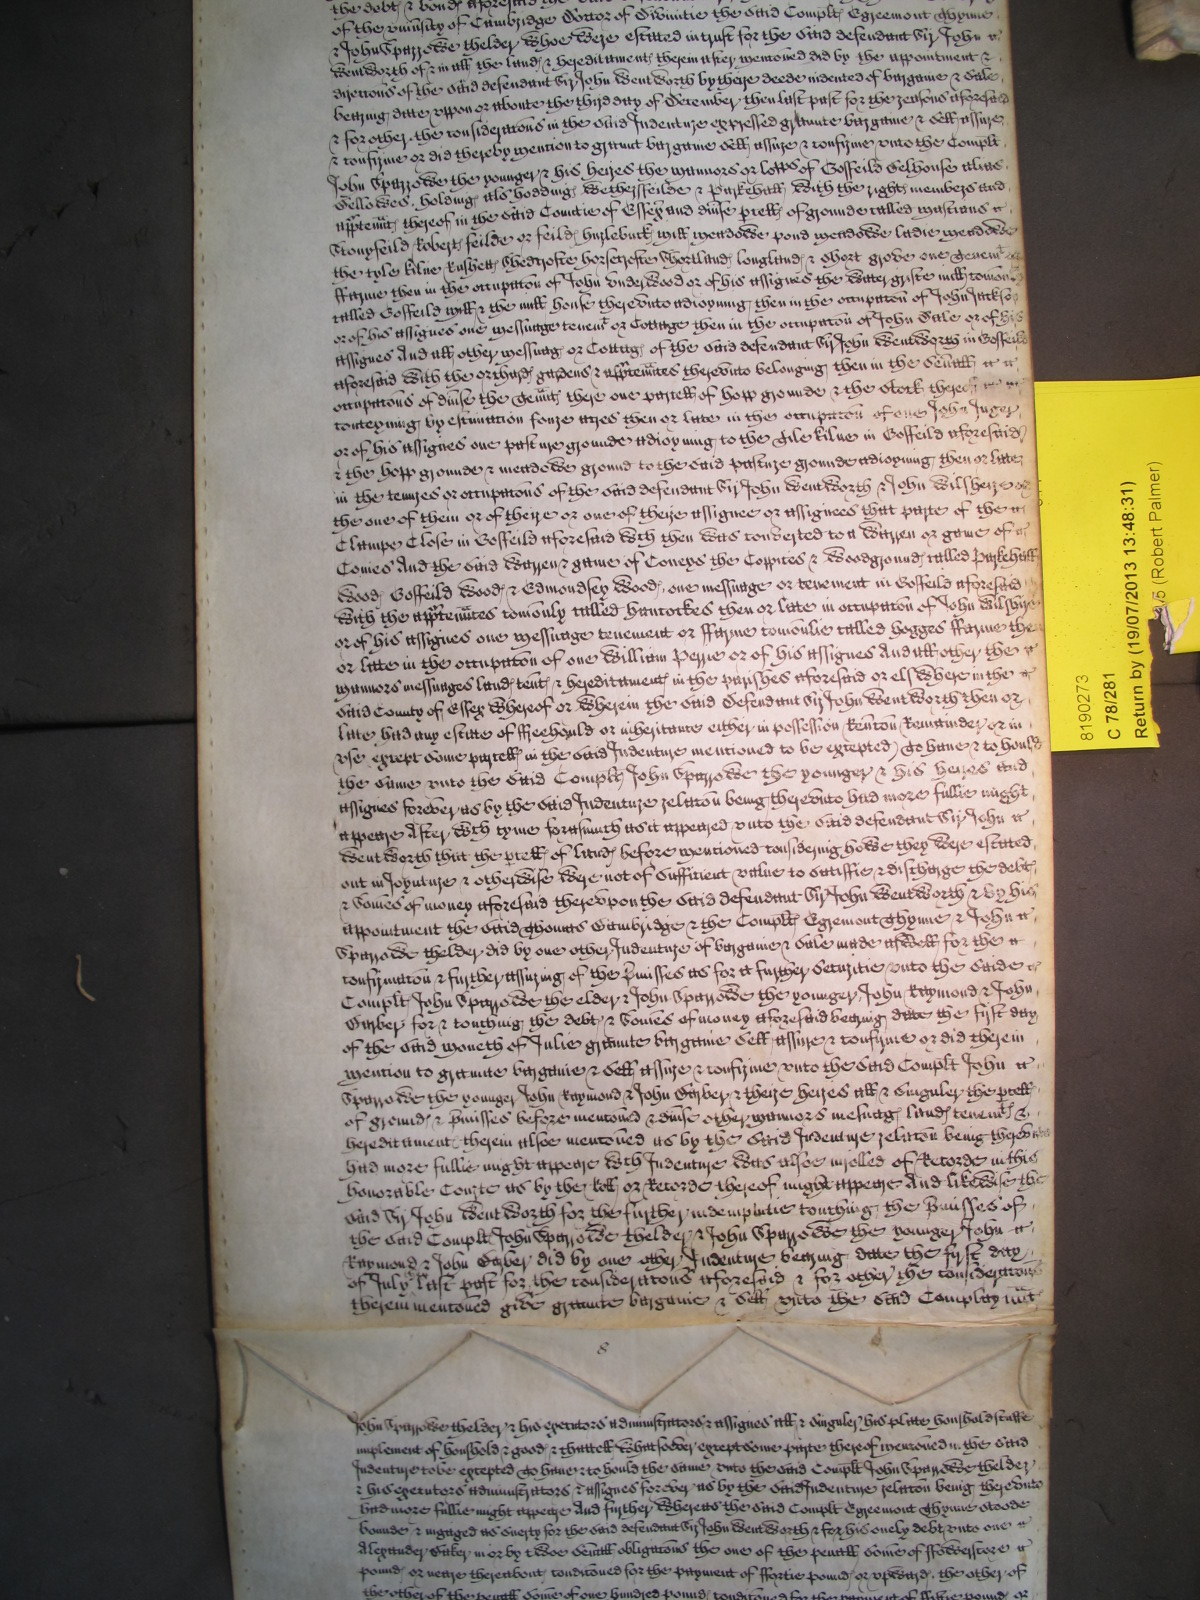 the debt & bond aforesaid the said
of the vniuersity of Cambridge Doctor of Divinitie the said Complt Egremont Thynne
& John Sparrowe thelder whoe were estated in trust for the said defendant Sir John
Wentworth of & in all the land & hereditament therein after mentoned did by the appointment &
direcons of the said defendant Sir John Wentworth by theire deede indented of bargaine & sale
bearing date vppon or aboute the third day of December then last past for the reasons aforesaid
& for other the consideracons in the said Indenture expressed graunte bargaine & sell assure
& confirme or did thereby mention to graunt bargaine sell assure & confirme vnto the Complt
John Sparrowe the younger & his heires the mannors or of Gosfeild Belhouse alias
Bellowes holding als hodding Wethersfeilde & Parkehall with the right members and
apptennc thereof in the said Countie of Essex and divse pcell of grounde called
feild Robert feilde or feild hurlebuck mill meadowe pond meadowe ladie meadowe
the tyle kilne Rushett horsecrofte Shortland longland & short grove one tenemt
ffarme then in the occupacon of John Vnderwood or of his assignes the water griste mill comonly
called Gosfeild mill & the mill house therevnto adioyning then in the occupacon of John Jackson
or of his assignes one messuage tenemt or Cottage then in the occupacon of John Sale or of his
assignes And all other messuag or Cottag of the said defendant Sir John Wentworth in Gosfeild
aforesaid with the orchard gardens & apptennces therevnto belonging then in the seuall
occupacons of divse the tennts there one parcell of hopp grounde & the stock thereof
conteyning by estimation foure acres then or late in the occupacon of one John Inger
or of his assignes one pasture grounde adioyning to the Tile kilne in Gosfeild aforesaid
& the hopp grounde & meadowe ground to the said pasture grounde adioyning then or late
in the tenures or occupacons of the said defendant Sir John Wentworth & John Wilsheire
the one of them or of theire or one of theire assignee or assignees that parte of the
Clampe Close in Gosfeild aforesaid wch then was converted to a Warren or game of
Conies And the said Warren & game of Coneys the Coppices & Woodground called Parkehall
Wood Gosfeild Wood & Edmondsey Wood one messuage or tenement in Gosfeild aforesaid
with the apptennces comonly called Hancockes then or late in occupacon of John Wilshire
or of his assignes one messuage tenement or ffarme comonlie called Hogges ffarme then
or late in the occupacon of one William Perrie or of his assignes And all other the
mannors messuages land tent & hereditament in the parishes aforesaid or elswhere in the
said County of Essex whereof or wherein the said defendant Sir John Wentworth then or
late had any estate of ffreehould or inheritance either in possession Reuton Remainder or in
vse except some parcell in the said Indenture mentioned to be excepted) To haue & to hould
the same vnto the said Complt John Sparrowe the younger & his heires and
assignes forever as by the said Indenture relacon being therevnto had more fullie might
appeare After wch tyme forasmuch as it appeared vnto the said defendant Sir John
Wentworth that the pcell of land before mentioned considering howe they were estated
out in Joynture & otherwise were not of sufficient value to satisfie & discharge the debt
& somes of money aforesaid therevpon the said defendant Sir John Wentworth & by his
appointment the said Thomas Cambridge & the Complt Egremont Thynne & John
Sparrowe thelder did by one other Indenture of bargaine & sale made aswell for the
confirmacon & further assuring of the pmisses as for a further securitie vnto the saide
Complt John Sparrowe the elder & John Sparrowe the younger John Raymond & John
Garber for & touching the debt & somes of money aforesaid bearing date the first day
of the said moneth of Julie graunte bargaine sell assure & confirme or did therein
mention to graunte bargaine & sell assure & confirme vnto the said Complt John
Sparrowe the younger John Raymond & John Garber & theire heires all & singuler the pcell
of ground & pmisses before mentoned & divse other mannors messuag land tenemt &
hereditament therein alsoe mentoned as by the said Indenture relacon being therevnto
had more fullie might appeare wch Indenture was alsoe inrolled of Recorde in this
honorable Courte as by the Roll or Recorde thereof might appeare And likewise the
said Sir John Wentworth for the further indempnitie touching the pmisses of
the said Complt John Sparrowe thelder & John Sparrowe the younger John
Raymond & John Garber did by one other Indenture bearing date the first day
of July last past for the consideracons aforesaid & for other the consideracons
therein mentoned give graunte bargaine & sell vnto the said Complaynnt
8
John Sparrowe thelder & his executors administrators & assignes all & singuler his plate houshold stuffe
implement of houshold & good & chattell whatsoever except some parte thereof mentoned in the said
Indenture to be excepted To haue & to hould the same vnto the said Complt John Sparrowe thelder
& his executors administrators & assignes forever as by the said Indenture relacon being therevnto
had more fullie might appeare And further whereas the said Complt Egremont Thynne stoode
bounde & ingaged as suerty for the said defendant Sir John Wentworth & for his onely debt vnto one
Alexander Baker in or by twoe seuall obligacons the one of the penall some of ffowerscore
pound or neare thereabout conditoned for the payment of ffortie pound or vpward the other of
the other of the penall some of one hundred pound conditoned for the payment of fiftie pound or
8190273
C 78/281
Return by (19/07/2013 13:48:31)
(Robert Palmer)